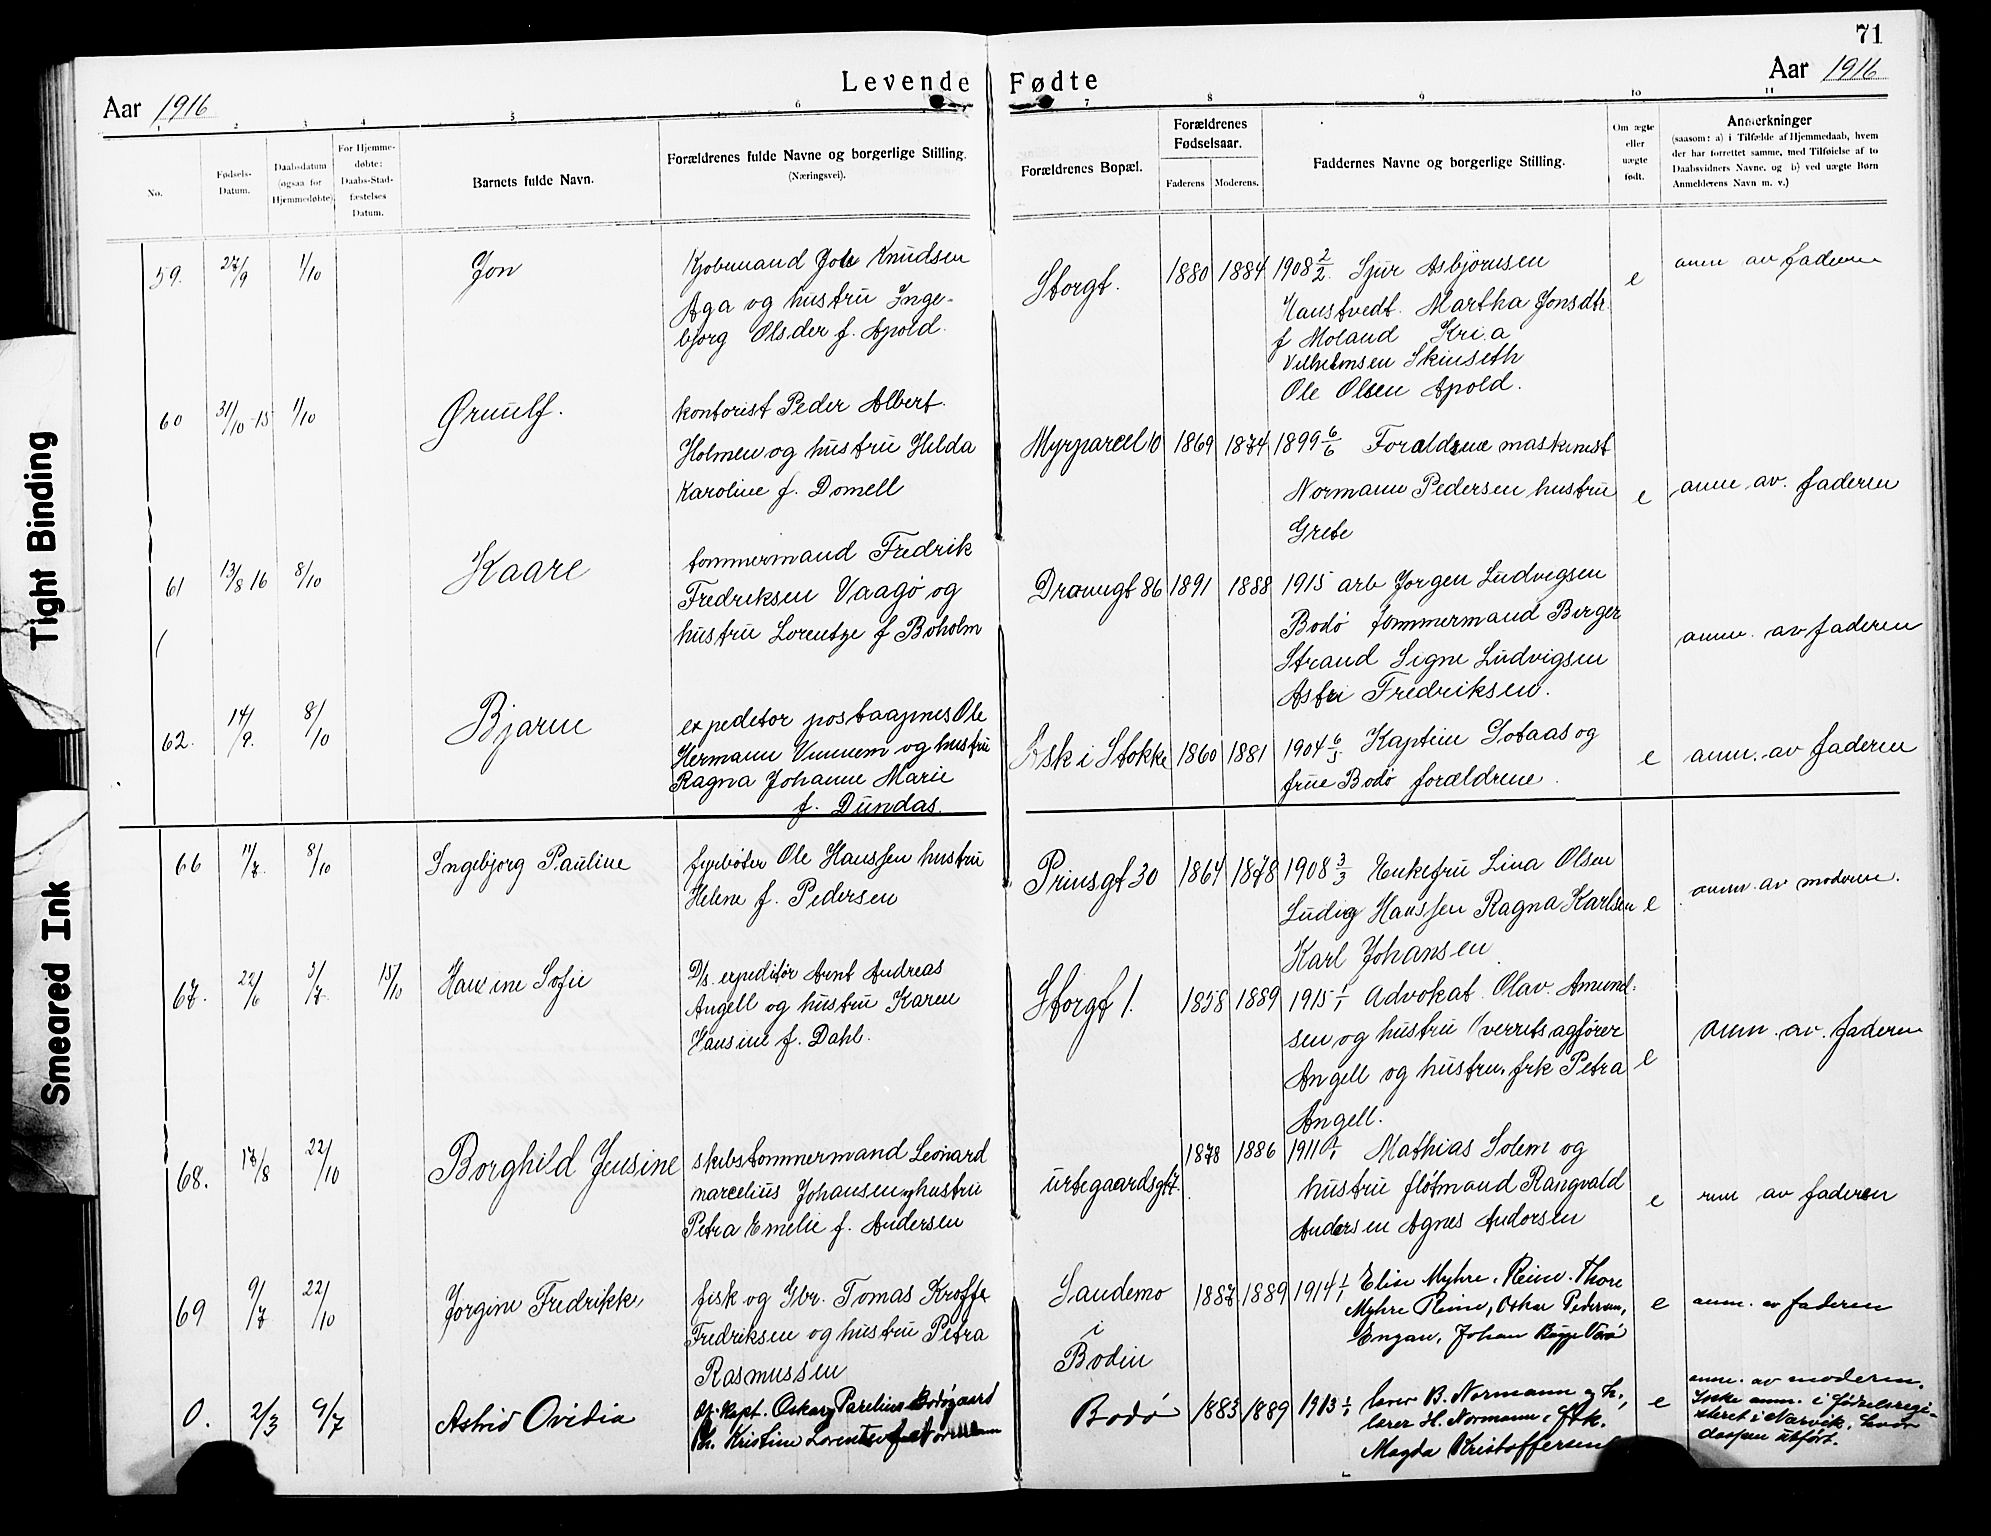 71
Levende Fødte
Aar 1916
Aar 1916
1 2 3 4 5 6 7 8 9 10 11
No.
Fødsels-
Datum.
Daabsdatum
(ogsaa for
Hjemmedøbte)
For Hjemme-
døbte:
Daabs-Stad-
fæstelses
Datum.
Barnets fulde Navn.
Forældrenes fulde Navne og borgerlige Stilling.
(Næringsvei).
Forældrenes Bopæl.
Forældrenes
Fødselsaar.
Faderens Moderens.
Faddernes Navne og borgerlige Stilling.
Om ægte
eller
uægte
født.
Anmerkninger
(saasom: a) i Tilfælde af Hjemmedaab, hvem
der har forrettet samme, med Tilføielse af to
Daabsvidners Navne, og b) ved uægte Børn
Anmelderens Navn m. v.)
59. 27/9 1/10 Jon
Kjøbmand Jole Knudsen
Aga og hustru Inge-
bjørg Olsder f. Apold.
Storgt. 1880 1884
1908 2/2. Sjur Asbjørnsen
Haustvedt. Martha Jonsdtr.
f Moland Kria
Vilhelmsen Skinseth
Ole Olsen Apold.
e
anm av faderen
60 31/10-15 1/10 Ørnulf.
kontorist Peder Albert
Holmen og hustru Hilda
Karoline f. Domell
Myrparcel 10 1869 1874
1899 6/6 Forældrene maskinist
Normann Pedersen hustru
Grete
e
anm av. faderen
61 13/8 16 8/10 Kaare
tømmermand Fredrik
Fredriksen Vaagø og
hustru Lorentze f Boholm
Dronngt 86 1891 1888
1915 arb Jørgen Ludvigsen
Bodø tømmermand Birger
Strand Signe Ludvigsen
Astri Fredriksen.
anm. av faderen
62. 14/9. 8/10 Bjarne
expeditør postaapnes Ole
Hermann Vinnem og hustru
Ragna Johanne Marie
f. Dundas.
Ask i Stokke 1860 1881
1904 6/5 Kaptein Sotaas og
frue Bodø forældrene.
e
anm. av faderen
66 11/7. 8/10 Ingebjørg Pauline
fyrbøter Ole Hanssen hustru
Helene f. Pedersen
Prinsgt 30 1864 1878
1908 3/3 Enkefru Lina Olsen
Ludvig Hanssen Ragna Karlsen
Karl Johansen
e
anm. av moderen.
67. 22/6 3/7. 15/10 Hansine Sofie
D/s. expeditør Arnt Andreas
Angell og hustru Karen
Hansine f. Dahl.
Storgt 1. 1858 1889
1915 1/1 Advokat Olav Amund-
sen og hustru overretssagfører
Angell og hustru, frk Petra
Angell.
e
anm. av. faderen
68. 17/8 22/10 Borghild Jensine
skibstømmermand Leonard
narcelius Johansen og hustru
Petra Emelie f. Andersen
urtegaardsgt 7. 1878 1886
1911 Mathias Solem og
hustru fløtmand Rangvald
Andersen Agnes Andorsen
e
av faderen
69 9/7 22/10 Jørgine Fredrikke
fisk og Gbr. Tomas Kroffe
Fredriksen og hustru Petra
Rasmussen
Sandemo
i
Bodin
1887 1889
1914 1/1 Elise Myhre, Reine. Thore
Myhre Reine, Oskar Pedersen,
Engan, Johan Bugge Værø
e
anm. av faderen
0. 2/3 9/7 Astrid Ovidia
Oskar Parelius Bodøgaard
Kristine Lorentse f. Normann
Bodø 1883 1889
1913 1/1 lærer B. Normann og h.,
lærer H. Normann, frk.
Magda Kristoffersen
e
anm. av moderen.
Ikke anm. i fødselsregi-
steret i Narvik, hvor
daapen utført.
Tight Binding
Smeared Ink